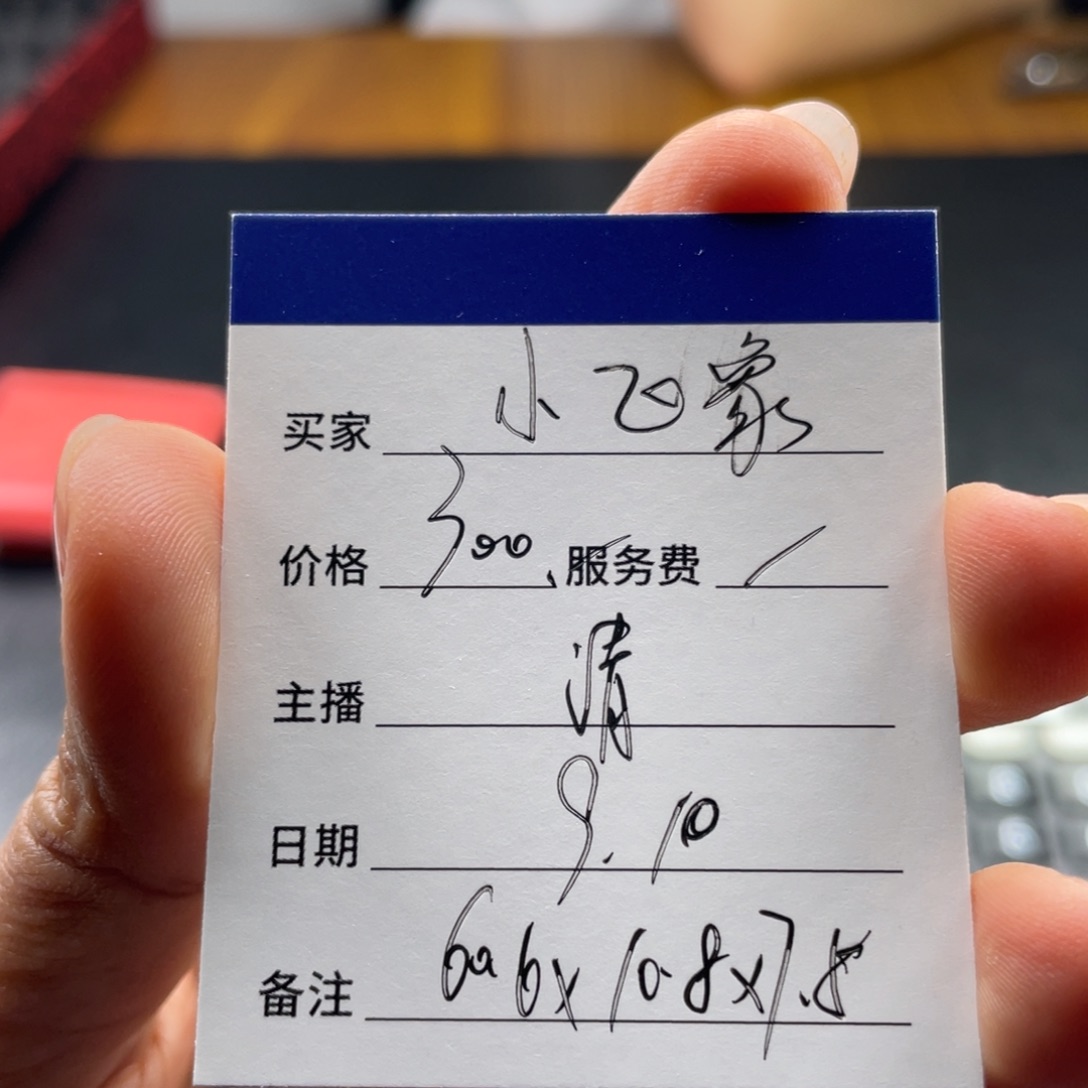 买家 小飞象
价格 300 服务费 /
主播 清
日期 9.10
备注 60.6x10.8x7.8